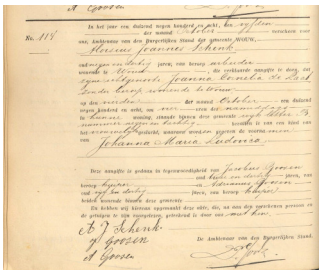 In het jaar een duizend negen honderd en acht, den vijfden
der maand October verscheen voor
No. 114 ons, Ambtenaar van den Burgerlijken Stand der gemeente WOUW,
Aloisius Joannes Schenk
oud negen en dertig jaren, van beroep arbeider
wonende te Wouw, die verklaarde aangifte te doen, dat
zijne echtgenoote Joanna Cornelia de Laat
zonder beroep wonende te Wouw
op den der maand October een duizend
negen honderd en acht, ten ure des
in hunne woning, staande binnen deze gemeente wijk letter B
nummer negen en tachtig bevallen is van een kind van
het geslacht, waaraan wordt gegeven de voornamen
Johanna Maria Ludovica
Deze aangifte is gedaan in tegenwoordigheid van Jacobus Goosen
oud en dertig jaren, van
beroep en Adrianus Goosen
oud en dertig jaren, van beroep
beiden wonende binnen deze gemeente
En hebben wij hiervan opgemaakt deze akte, die, na aan den aangever en
de getuigen te zijn voorgelezen, geteekend is door ons, met hen
De Ambtenaar van den Burgerlijken Stand,
A J Schenk
J Goosen
A Goosen